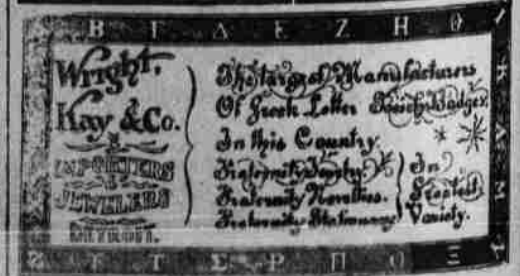 B Γ Δ E Z H Θ I
Wright,
Kay & Co.
IMPORTERS
&
JEWELERS
DETROIT.
The largest Manufacturers
Of Greek Letter Society Badges
In this Country.
Fraternity Jewelry
Fraternity Novelties.
Fraternity Stationery
In
Greatest
Variety.
K Λ M N
Τ Σ Ρ Π Ο Ξ